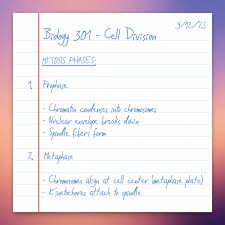 9/12/23
Biology 301 - Cell Division
MITOSIS PHASES:
1. Prophase
- Chromatin condenses into chromosomes
- Nuclear envelope breaks down
- Spindle fibers form
2. Metaphase
- Chromosomes align at cell center (metaphase plate)
- Kinetochores attach to spindle